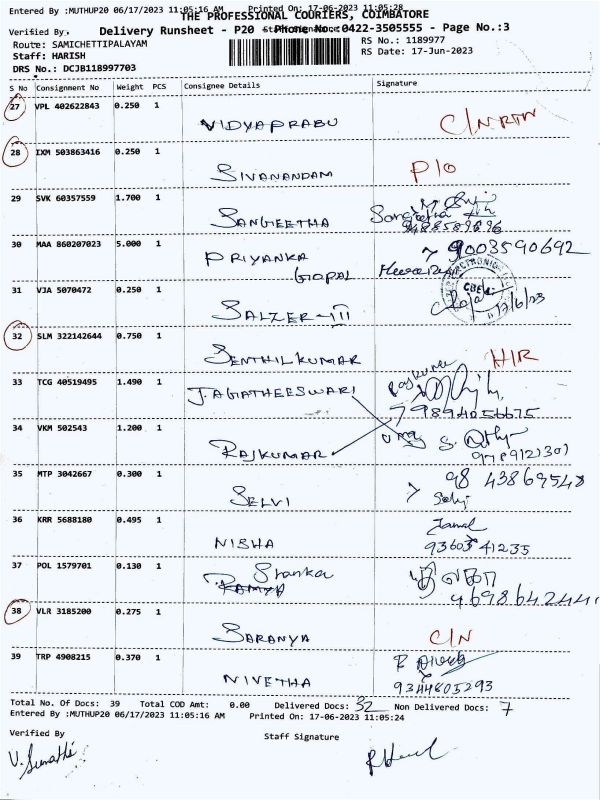 Entered By :MUTHUP20 06/17/2023 11:05:16 AM Printed On: 17-06-2023 11:05:24
THE PROFESSIONAL COURIERS, COIMBATORE
Verified By: Delivery Runsheet - P20 - Phone No.:0422-3505555 - Page No.:3
Staff Signature
Route: SAMICHETTIPALAYAM RS No.: 1189977
Staff: HARISH RS Date: 17-Jun-2023
DRS No.: DCJB118997703
S No Consignment No Weight PCS Consignee Details Signature
27 VPL 402622843 0.250 1 VIDYAPRABU C/N RTN
28 IXM 503863416 0.250 1 SIVANANDAM P/O
29 SVK 60357559 1.700 1 SANGEETHA Sangeetha
30 MAA 860207023 5.000 1 PRIYANKA GOPAL 9003590692
31 VJA 5070472 0.250 1 SALZER-III CBE 17/6/23
32 SLM 322142644 0.750 1 SENTHILKUMAR H/R
33 TCG 40519495 1.490 1 J.AGATHEESWARI Rajkumar
9894056675
34 VKM 502543 1.200 1 RAJKUMAR 9789121301
35 MTP 3042667 0.300 1 SELVI 98 43869548
Selvi
36 KRR 5688180 0.495 1 NISHA
93603 41235
37 POL 1579701 0.130 1 RAMYA
38 VLR 3185200 0.275 1 SARANYA C/N
39 TRP 4908215 0.370 1 NIVETHA
9344805293
Total No. Of Docs: 39 Total COD Amt: 0.00 Delivered Docs: 32 Non Delivered Docs: 7
Entered By :MUTHUP20 06/17/2023 11:05:16 AM Printed On: 17-06-2023 11:05:24
Verified By Staff Signature
V. Sumathi